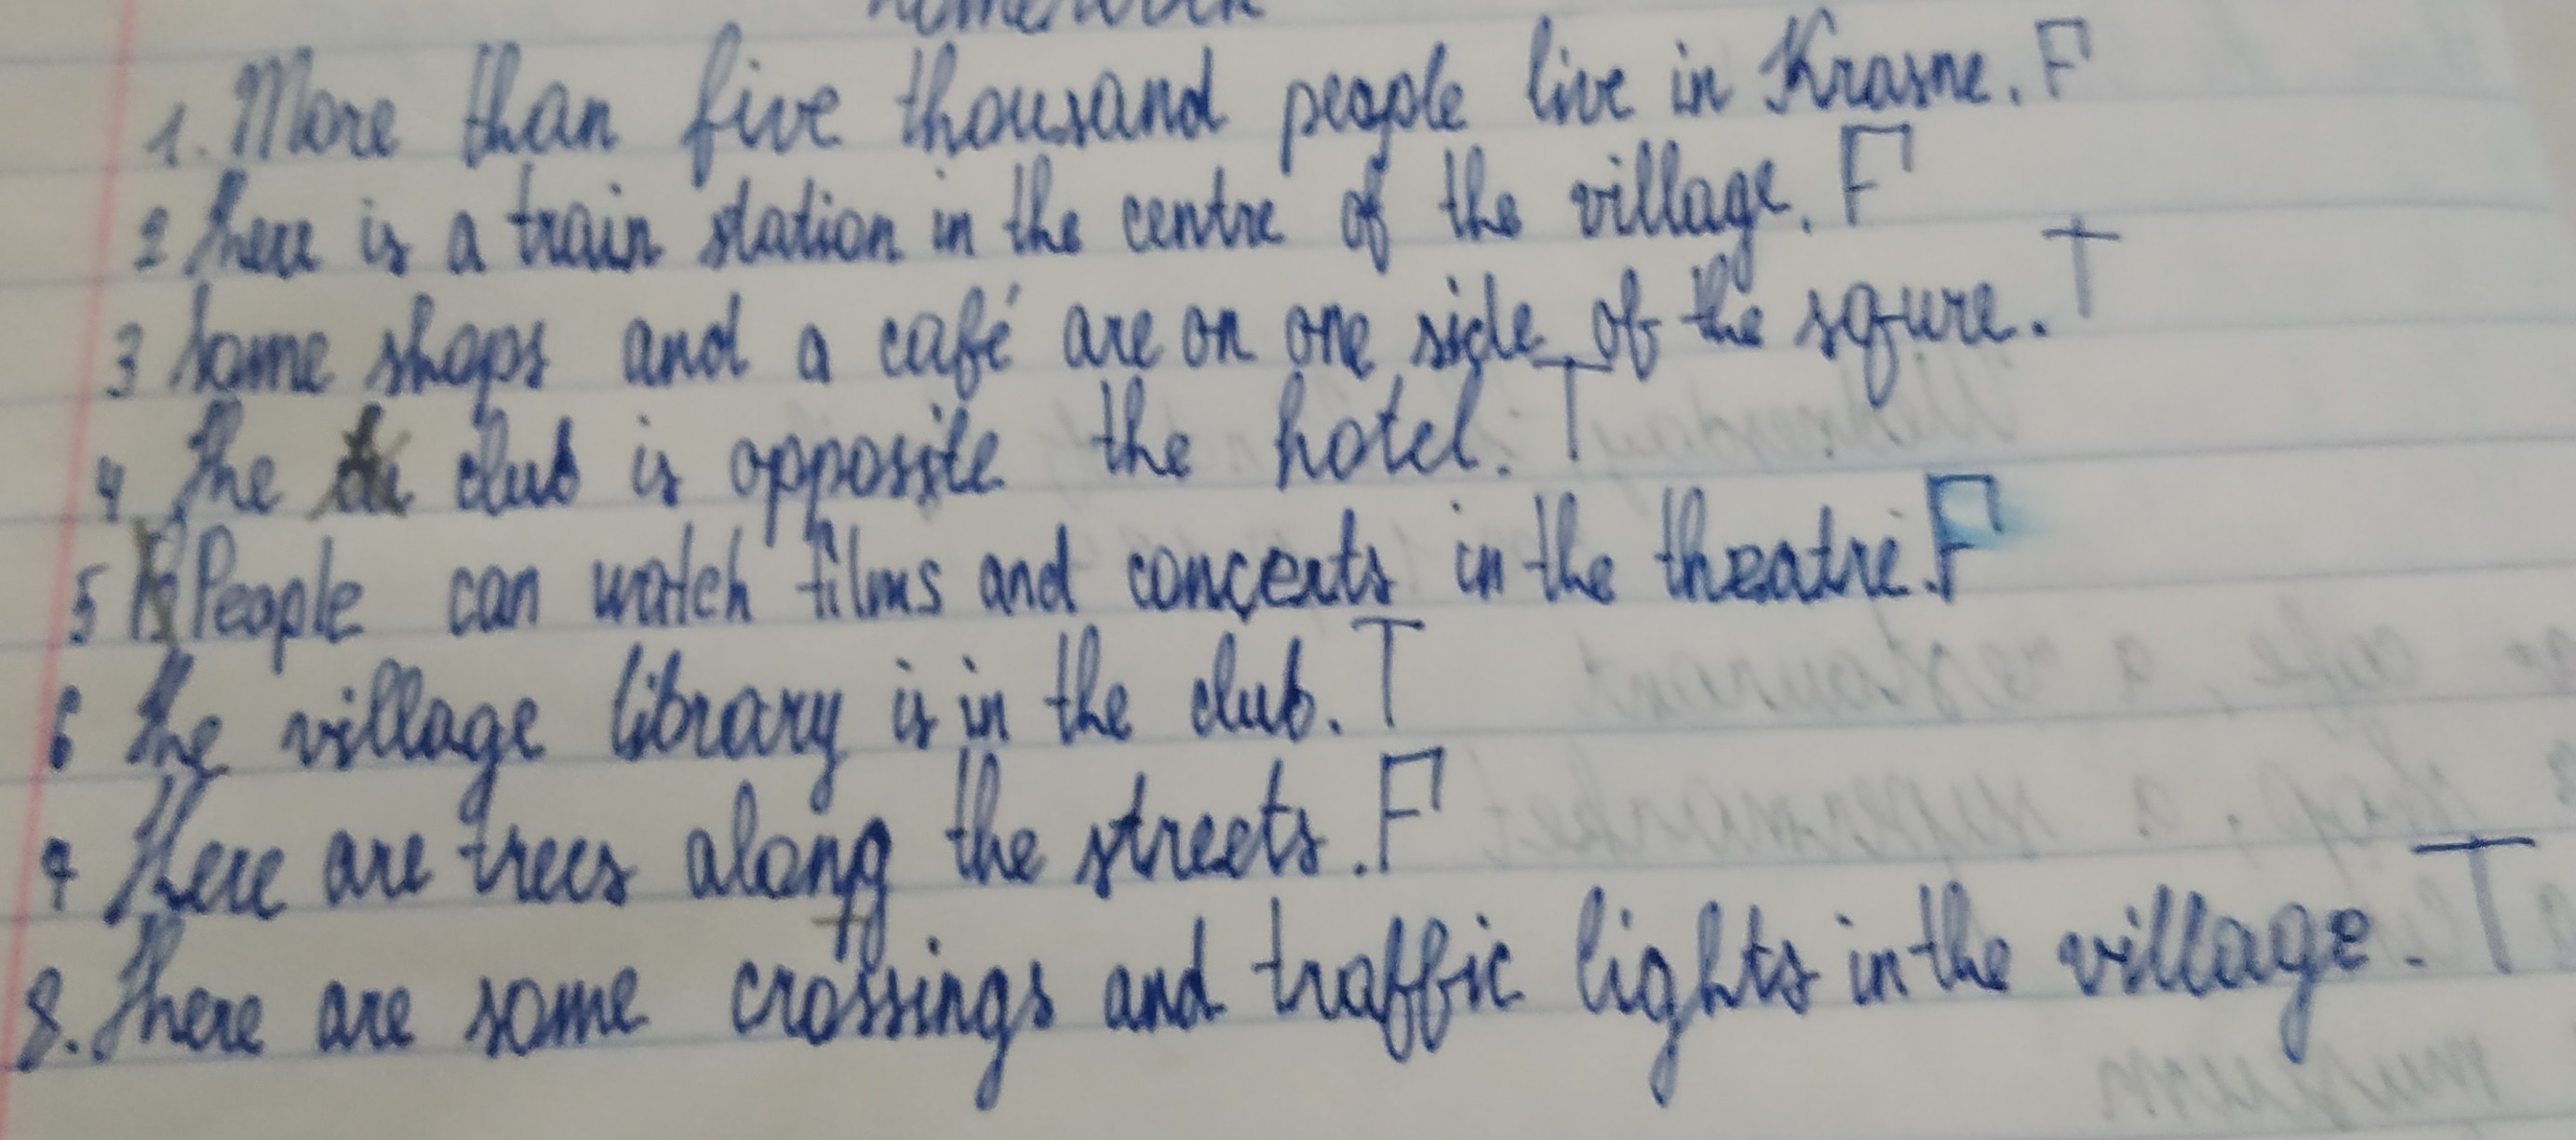 Homework
1. More than five thousand people live in Krasne. F
2 There is a train station in the centre of the village. F
3 Some shops and a café are on one side of the squre. T
4 The club is opposite the hotel. T
5 People can watch films and concerts in the theatre. F
6 The village library is in the club. T
7 There are trees along the streets. F
8. There are some crossings and traffic lights in the village. T